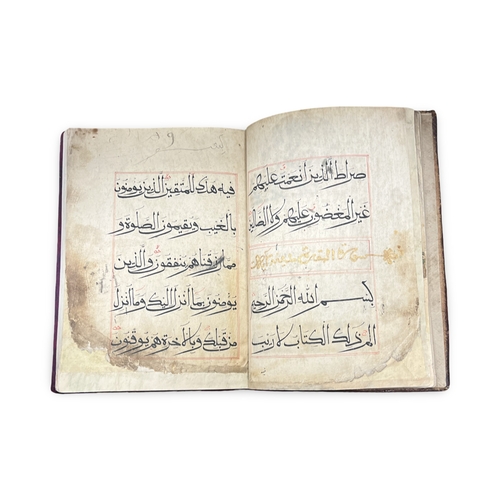 صراط الذين انعمت عليهم
غير المغضوب عليهم ولا
سورة البقرة
بسم الله الرحمن الرحيم
الم ذلك الكتاب لا ريب
فيه هدى للمتقين الذين يومنون
بالغيب ويقيمون الصلوة و
مما رزقناهم ينفقون والذين
يومنون بما انزل اليك وما انزل
من قبلك وبالاخرة هم يوقنون